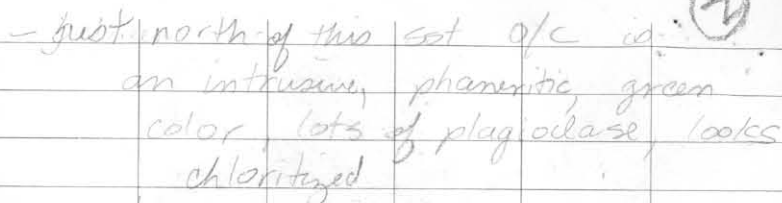 - just north of this sst o/c is
an intrusive, phaneritic, green
color, lots of plagioclase, looks
chloritized